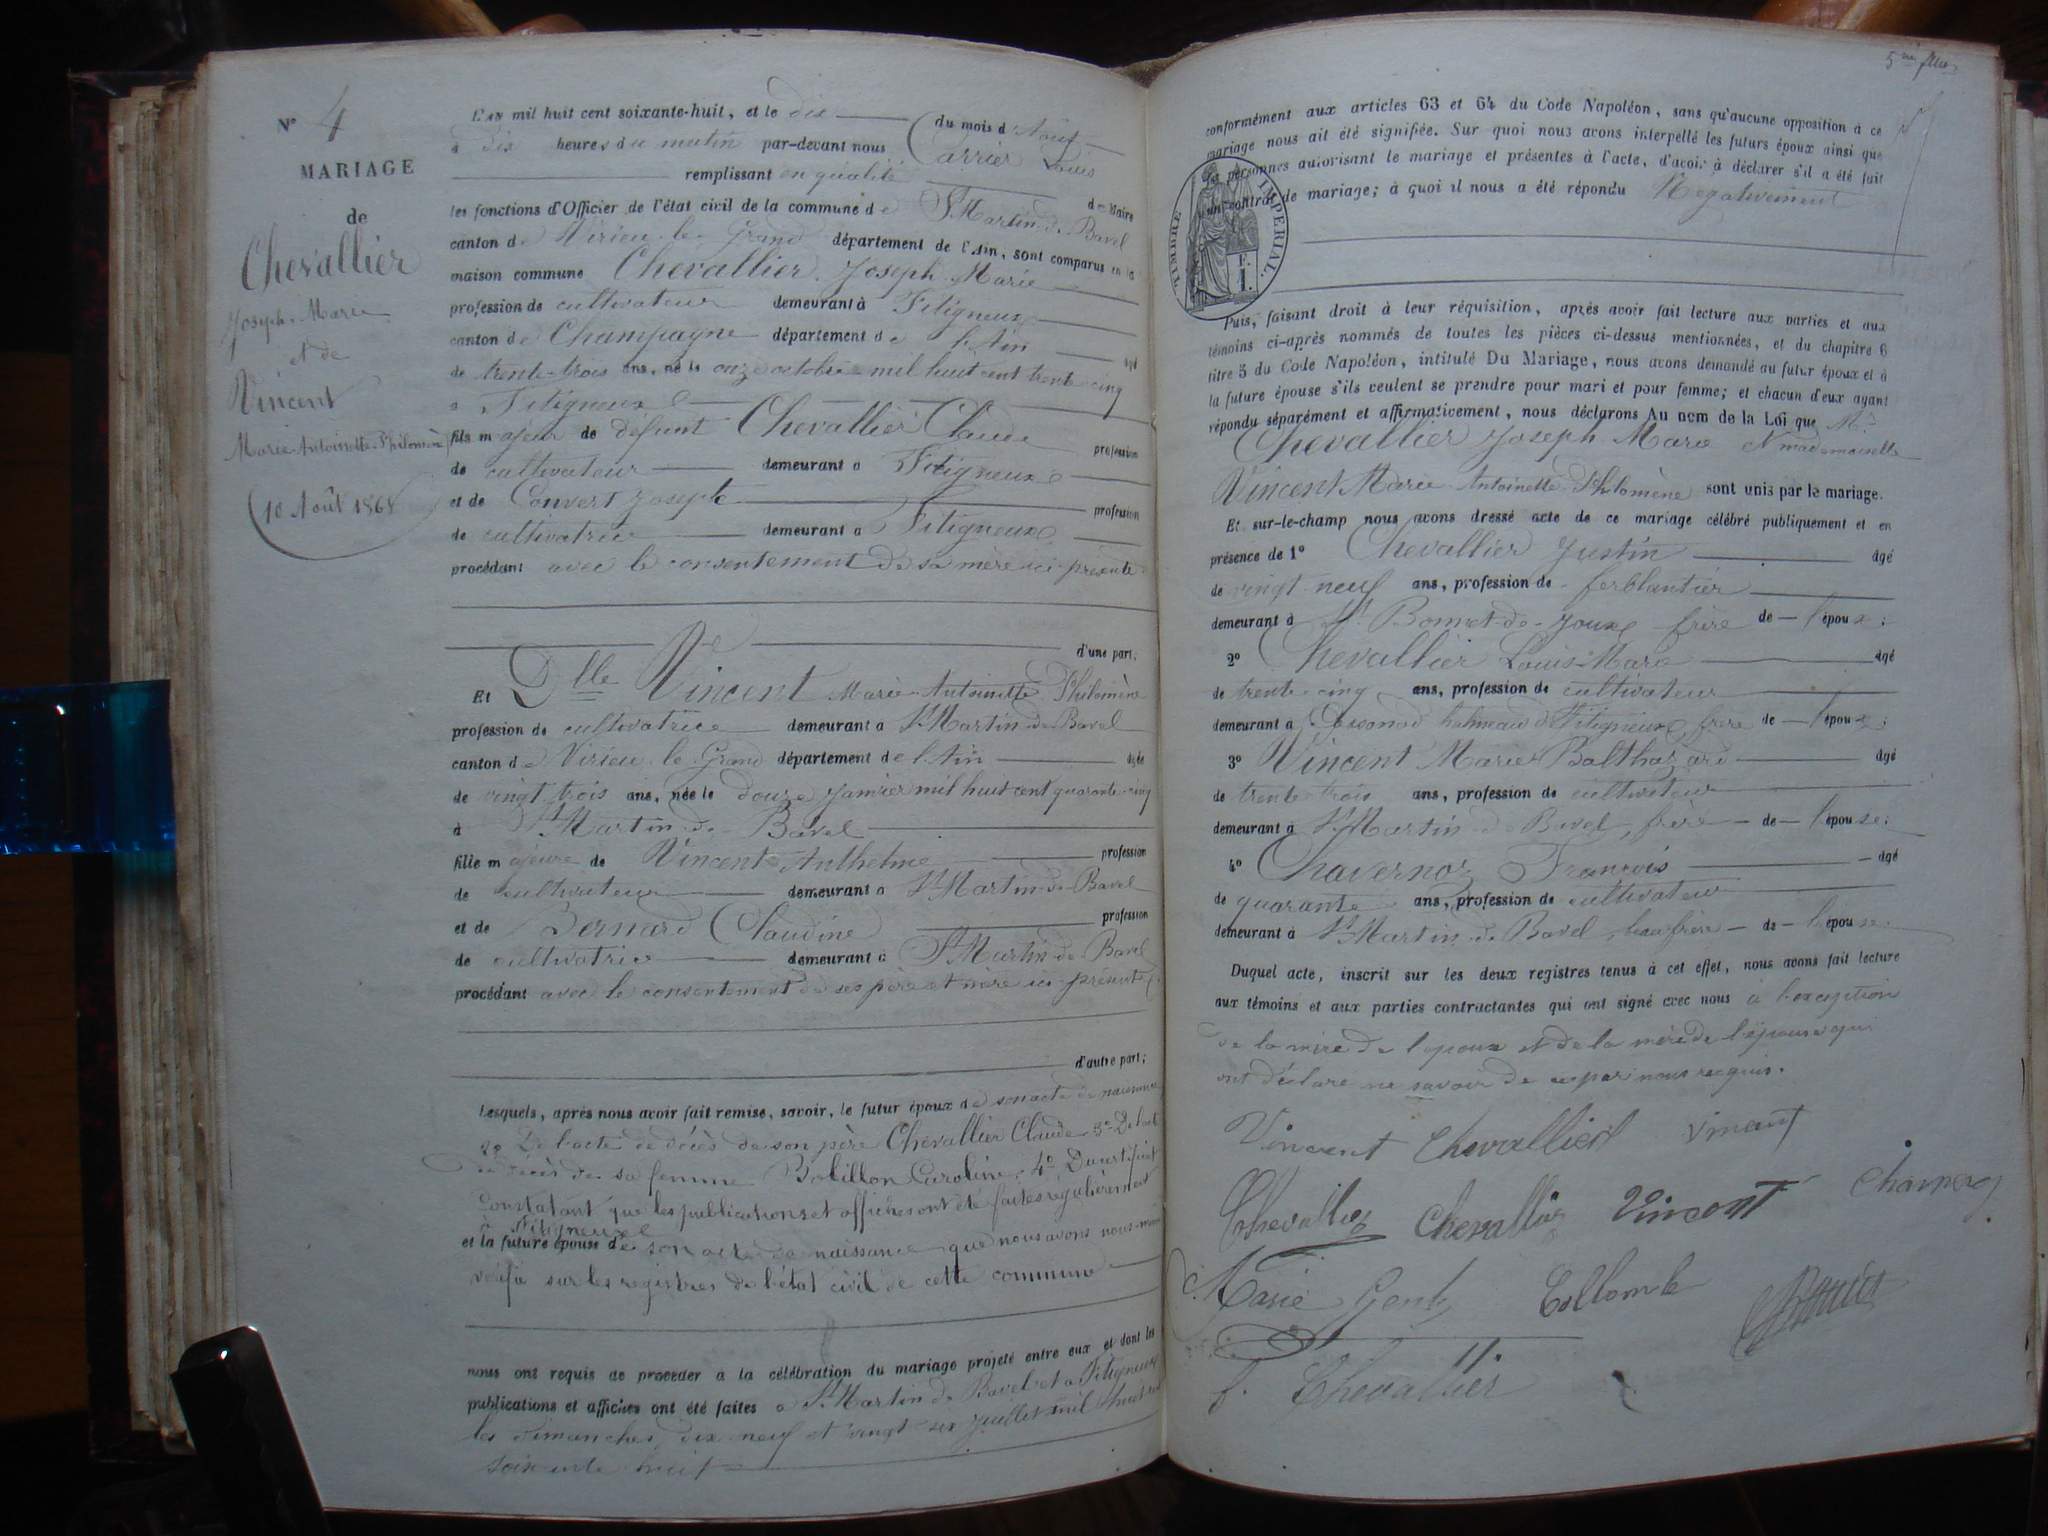 N° 4
MARIAGE
de
Chevallier
Joseph-Marie
et de
Vincent
Marie-Antoinette-Philomène
10 Août 1868
L'AN mil huit cent soixante-huit, et le dix du mois d'Août
à dix heures du matin par-devant nous Carrier Louis
remplissant en qualité de Maire
les fonctions d'Officier de l'état civil de la commune de St Martin-de-Bavel
canton de Virieu-le-Grand département de l'Ain, sont comparus en la
maison commune Chevallier Joseph-Marie
profession de cultivateur demeurant à Fitigneux
canton de Champagne département de l'Ain âgé
de trente-trois ans, né le onze octobre mil huit cent trente-cinq
à Fitigneux
fils majeur de défunt Chevallier Claude profession
de cultivateur demeurant à Fitigneux
et de Convert Josepte profession
de cultivatrice demeurant à Fitigneux
procédant avec le consentement de sa mère ici présente
d'une part;
Et Dlle Vincent Marie-Antoinette Philomène
profession de cultivatrice demeurant à St Martin-de-Bavel
canton de Virieu-le-Grand département de l'Ain âgée
de vingt trois ans, née le douze janvier mil huit cent quarante-cinq
à St Martin-de-Bavel
fille majeure de Vincent Anthelme profession
de cultivateur demeurant à St Martin-de-Bavel
et de Bernard Claudine profession
de cultivatrice demeurant à St Martin-de-Bavel
procédant avec le consentement de ses père et mère ici présents
d'autre part;
Lesquels, après nous avoir fait remise, savoir, le futur époux de son acte de naissance
2° De l'acte de décès de son père Chevallier Claude 3° De l'acte
de décès de sa femme Bolillon Caroline, 4° Du certificat
constatant que les publications et affiches ont été faites régulièrement
à Fitigneux
et la future épouse de son acte de naissance que nous avons nous-même
vérifié sur les registres de l'état civil de cette commune
nous ont requis de procéder à la célébration du mariage projeté entre eux et dont les
publications et affiches ont été faites à St Martin-de-Bavel et à Fitigneux
les dimanches dix neuf et vingt-six juillet mil huit cent
soixante huit
5me
conformément aux articles 63 et 64 du Code Napoléon, sans qu'aucune opposition à ce
mariage nous ait été signifiée. Sur quoi nous avons interpellé les futurs époux ainsi que
les personnes autorisant le mariage et présentes à l'acte, d'avoir à déclarer s'il a été fait
un contrat de mariage; à quoi il nous a été répondu Négativement
TIMBRE IMPERIAL.
F.
1.
Puis, faisant droit à leur réquisition, après avoir fait lecture aux parties et aux
témoins ci-après nommés de toutes les pièces ci-dessus mentionnées, et du chapitre 6
titre 5 du Code Napoléon, intitulé Du Mariage, nous avons demandé au futur époux et à
la future épouse s'ils veulent se prendre pour mari et pour femme; et chacun d'eux ayant
répondu séparément et affirmativement, nous déclarons Au nom de la Loi que Mr
Chevallier Joseph Marie et mademoiselle
Vincent Marie-Antoinette-Philomène sont unis par le mariage.
Et sur-le-champ nous avons dressé acte de ce mariage célébré publiquement et en
présence de 1° Chevallier Justin âgé
de vingt-neuf ans, profession de ferblantier
demeurant à St Bonnet-de-Joux frère de l'époux;
2° Chevallier Louis-Marie âgé
de trente-cinq ans, profession de cultivateur
demeurant à hameau de Fitigneux, frère de l'époux;
3° Vincent Marie Balthazard âgé
de trente-trois ans, profession de cultivateur
demeurant à St Martin-de-Bavel, frère de l'épouse;
4° Chavernoz François âgé
de quarante ans, profession de cultivateur
demeurant à St Martin-de-Bavel, beau frère de l'épouse.
Duquel acte, inscrit sur les deux registres tenus à cet effet, nous avons fait lecture
aux témoins et aux parties contractantes qui ont signé avec nous à l'exception
de la mère de l'époux et de la mère de l'épouse qui
ont déclaré ne savoir de ce par nous requis.
Vincent Chevallier Vincent
Chevallier Chevallier Vincent
Marie Collomb
f. Chevallier